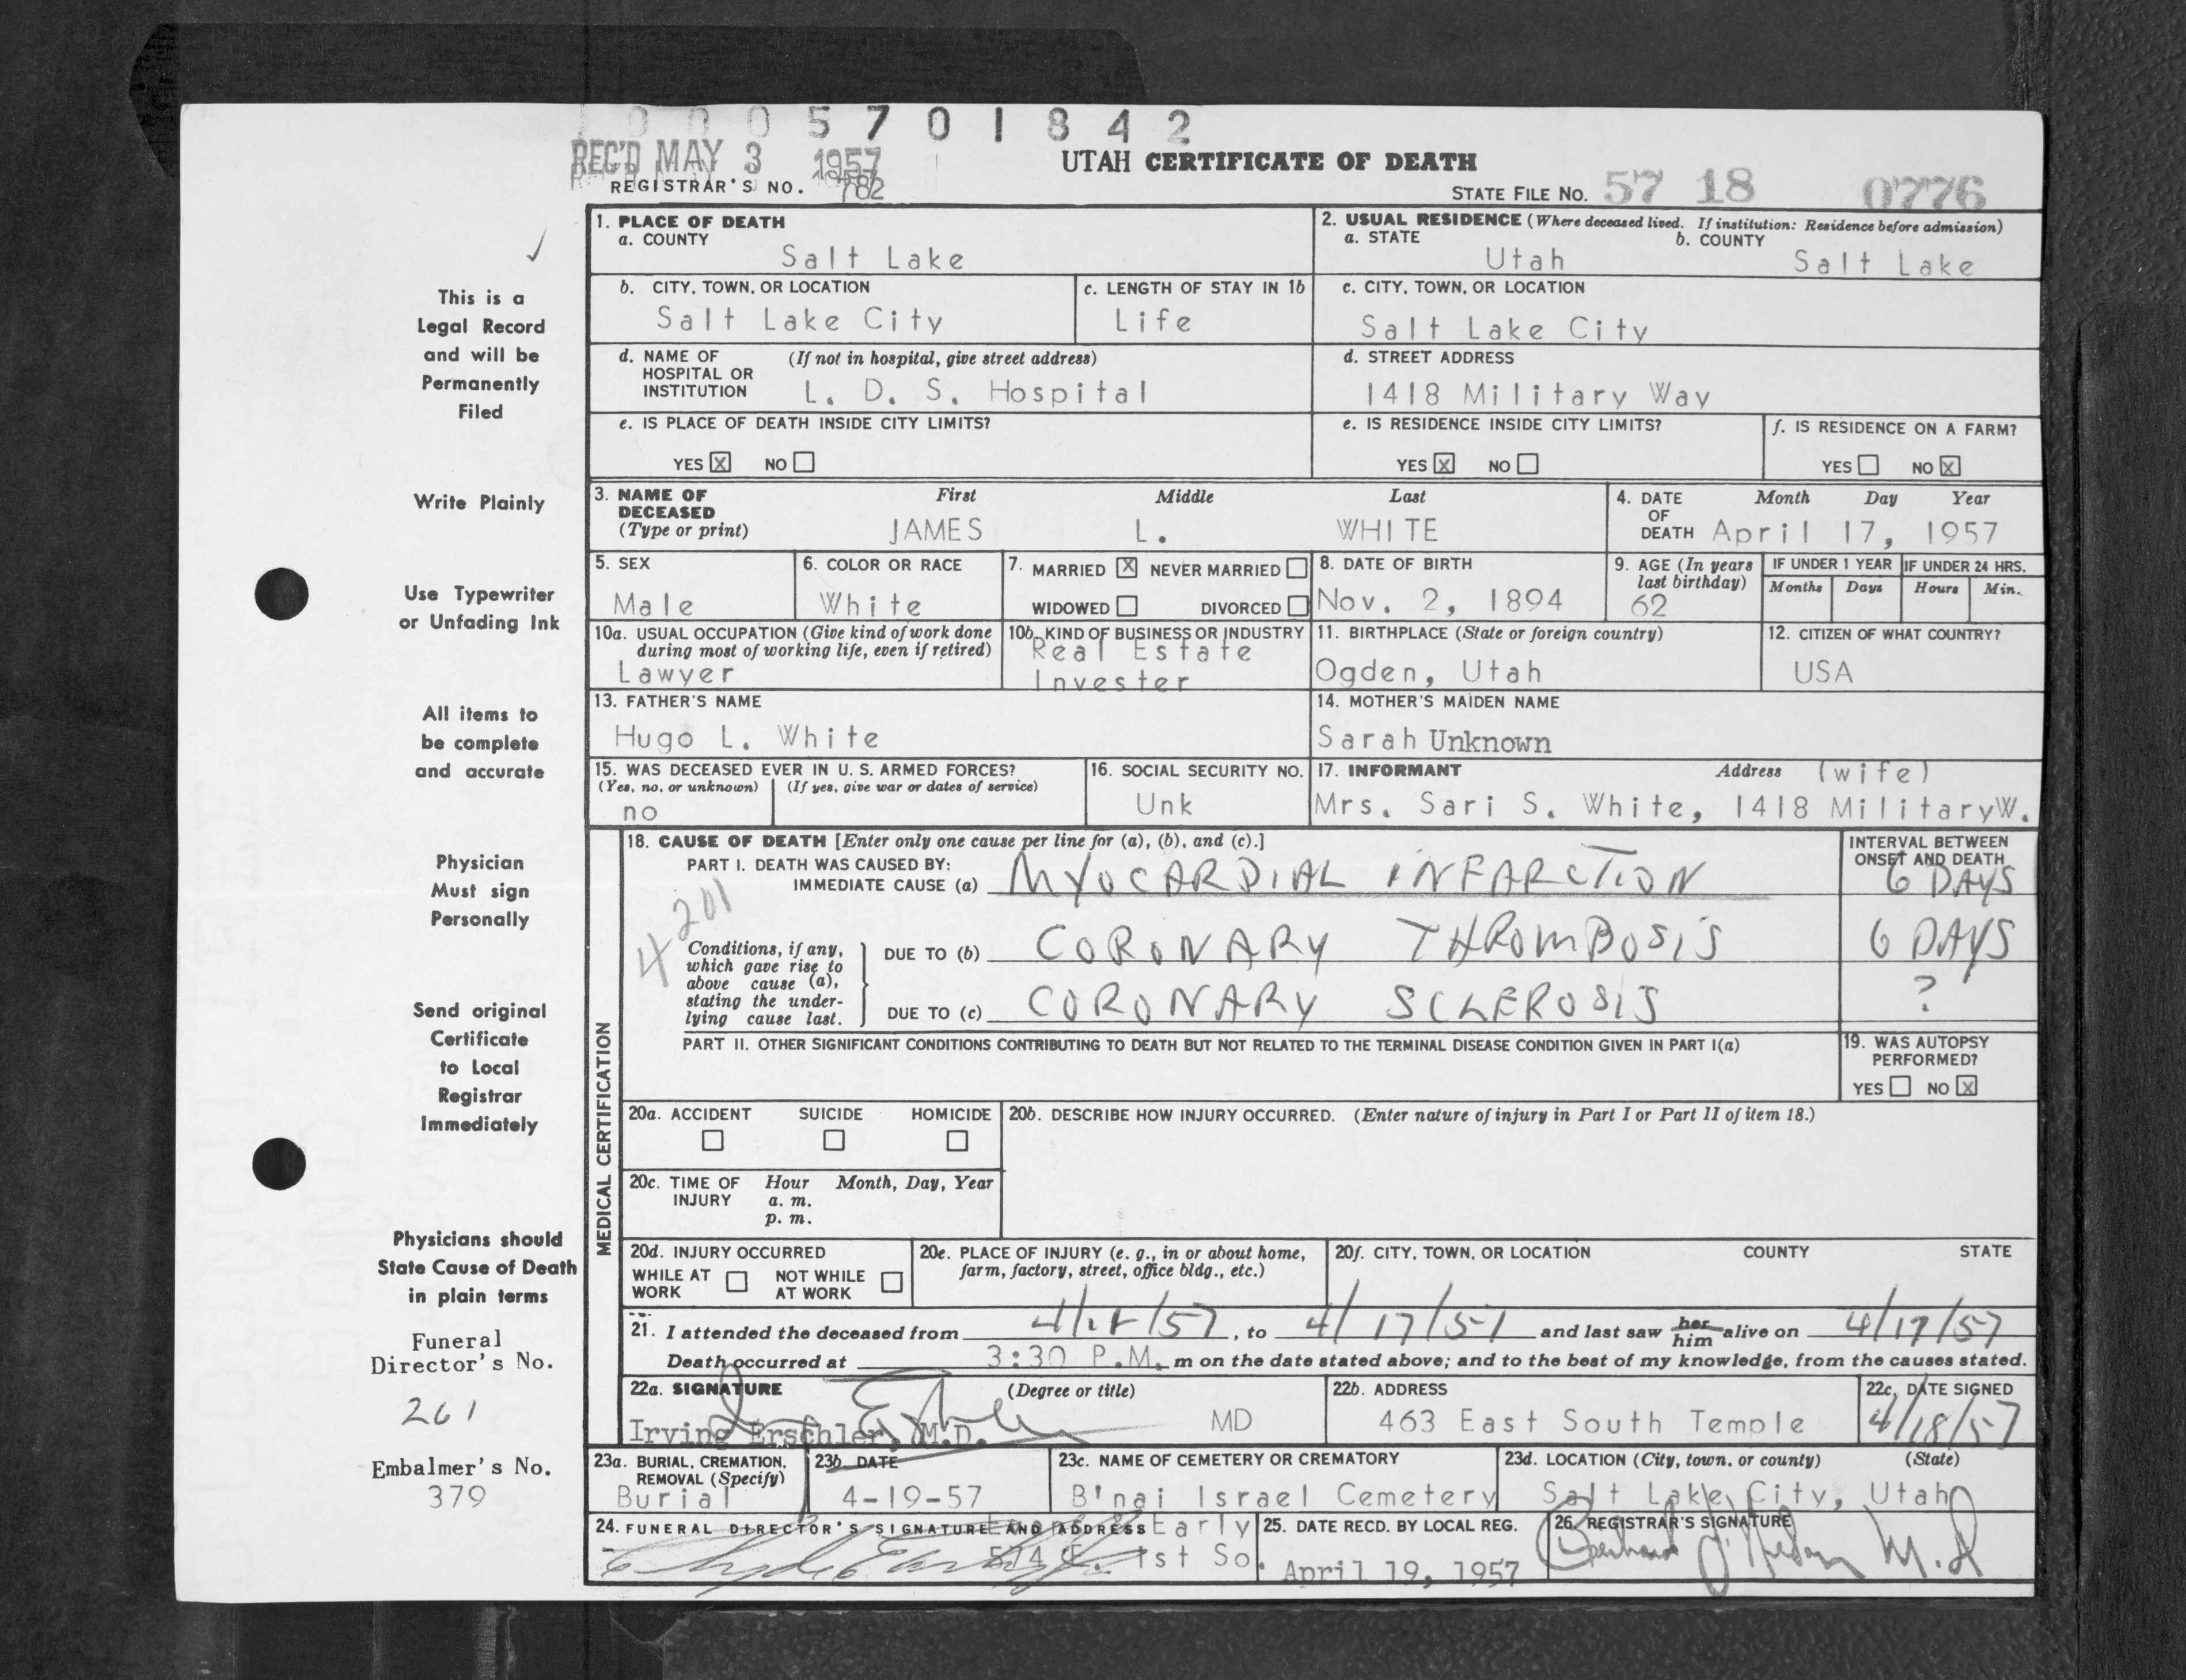 0 0 0 5 7 0 1 8 4 2
REC'D MAY 3 1957
REGISTRAR'S NO. 782
UTAH CERTIFICATE OF DEATH
STATE FILE NO. 57 18 0776
This is a
Legal Record
and will be
Permanently
Filed
Write Plainly
Use Typewriter
or Unfading Ink
All items to
be complete
and accurate
Physician
Must sign
Personally
Send original
Certificate
to Local
Registrar
Immediately
Physicians should
State Cause of Death
in plain terms
Funeral
Director's No.
261
Embalmer's No.
379
1. PLACE OF DEATH
a. COUNTY
Salt Lake
2. USUAL RESIDENCE (Where deceased lived. If institution: Residence before admission)
a. STATE b. COUNTY
Utah Salt Lake
b. CITY, TOWN, OR LOCATION
Salt Lake City
c. LENGTH OF STAY IN 1b
Life
c. CITY, TOWN, OR LOCATION
Salt Lake City
d. NAME OF (If not in hospital, give street address)
HOSPITAL OR
INSTITUTION L. D. S. Hospital
d. STREET ADDRESS
1418 Military Way
e. IS PLACE OF DEATH INSIDE CITY LIMITS?
YES X NO
e. IS RESIDENCE INSIDE CITY LIMITS?
YES X NO
f. IS RESIDENCE ON A FARM?
YES NO X
3. NAME OF First Middle Last
DECEASED
(Type or print) JAMES L. WHITE
4. DATE Month Day Year
OF
DEATH April 17, 1957
5. SEX
Male
6. COLOR OR RACE
White
7. MARRIED X NEVER MARRIED
WIDOWED DIVORCED
8. DATE OF BIRTH
Nov. 2, 1894
9. AGE (In years
last birthday)
62
IF UNDER 1 YEAR IF UNDER 24 HRS.
Months Days Hours Min.
10a. USUAL OCCUPATION (Give kind of work done
during most of working life, even if retired)
Lawyer
10b. KIND OF BUSINESS OR INDUSTRY
Real Estate
Invester
11. BIRTHPLACE (State or foreign country)
Ogden, Utah
12. CITIZEN OF WHAT COUNTRY?
USA
13. FATHER'S NAME
Hugo L. White
14. MOTHER'S MAIDEN NAME
Sarah Unknown
15. WAS DECEASED EVER IN U. S. ARMED FORCES?
(Yes, no, or unknown) (If yes, give war or dates of service)
no
16. SOCIAL SECURITY NO.
Unk
17. INFORMANT Address (wife)
Mrs. Sari S. White, 1418 MilitaryW.
MEDICAL CERTIFICATION
18. CAUSE OF DEATH [Enter only one cause per line for (a), (b), and (c).]
PART I. DEATH WAS CAUSED BY:
IMMEDIATE CAUSE (a) MYOCARDIAL INFARCTION
INTERVAL BETWEEN
ONSET AND DEATH
6 DAYS
4201
Conditions, if any,
which gave rise to
above cause (a),
stating the under-
lying cause last.
DUE TO (b) CORONARY THROMBOSIS 6 DAYS
DUE TO (c) CORONARY SCLEROSIS ?
PART II. OTHER SIGNIFICANT CONDITIONS CONTRIBUTING TO DEATH BUT NOT RELATED TO THE TERMINAL DISEASE CONDITION GIVEN IN PART I(a)
19. WAS AUTOPSY
PERFORMED?
YES NO X
20a. ACCIDENT SUICIDE HOMICIDE
20b. DESCRIBE HOW INJURY OCCURRED. (Enter nature of injury in Part I or Part II of item 18.)
20c. TIME OF Hour Month, Day, Year
INJURY a. m.
p. m.
20d. INJURY OCCURRED
WHILE AT NOT WHILE
WORK AT WORK
20e. PLACE OF INJURY (e. g., in or about home,
farm, factory, street, office bldg., etc.)
20f. CITY, TOWN, OR LOCATION COUNTY STATE
21. I attended the deceased from , to 4/17/57 and last saw her him alive on 4/17/57
Death occurred at 3:30 P.M. m on the date stated above; and to the best of my knowledge, from the causes stated.
22a. SIGNATURE (Degree or title)
Irving Erschler, M.D. MD
22b. ADDRESS
463 East South Temple
22c. DATE SIGNED
4/18/57
23a. BURIAL, CREMATION,
REMOVAL (Specify)
Burial
23b. DATE
4-19-57
23c. NAME OF CEMETERY OR CREMATORY
B'nai Israel Cemetery
23d. LOCATION (City, town, or county) (State)
Salt Lake City, Utah
24. FUNERAL DIRECTOR'S SIGNATURE AND ADDRESS Early
574 E. 1st So.
25. DATE RECD. BY LOCAL REG.
April 19, 1957
26. REGISTRAR'S SIGNATURE
M.D